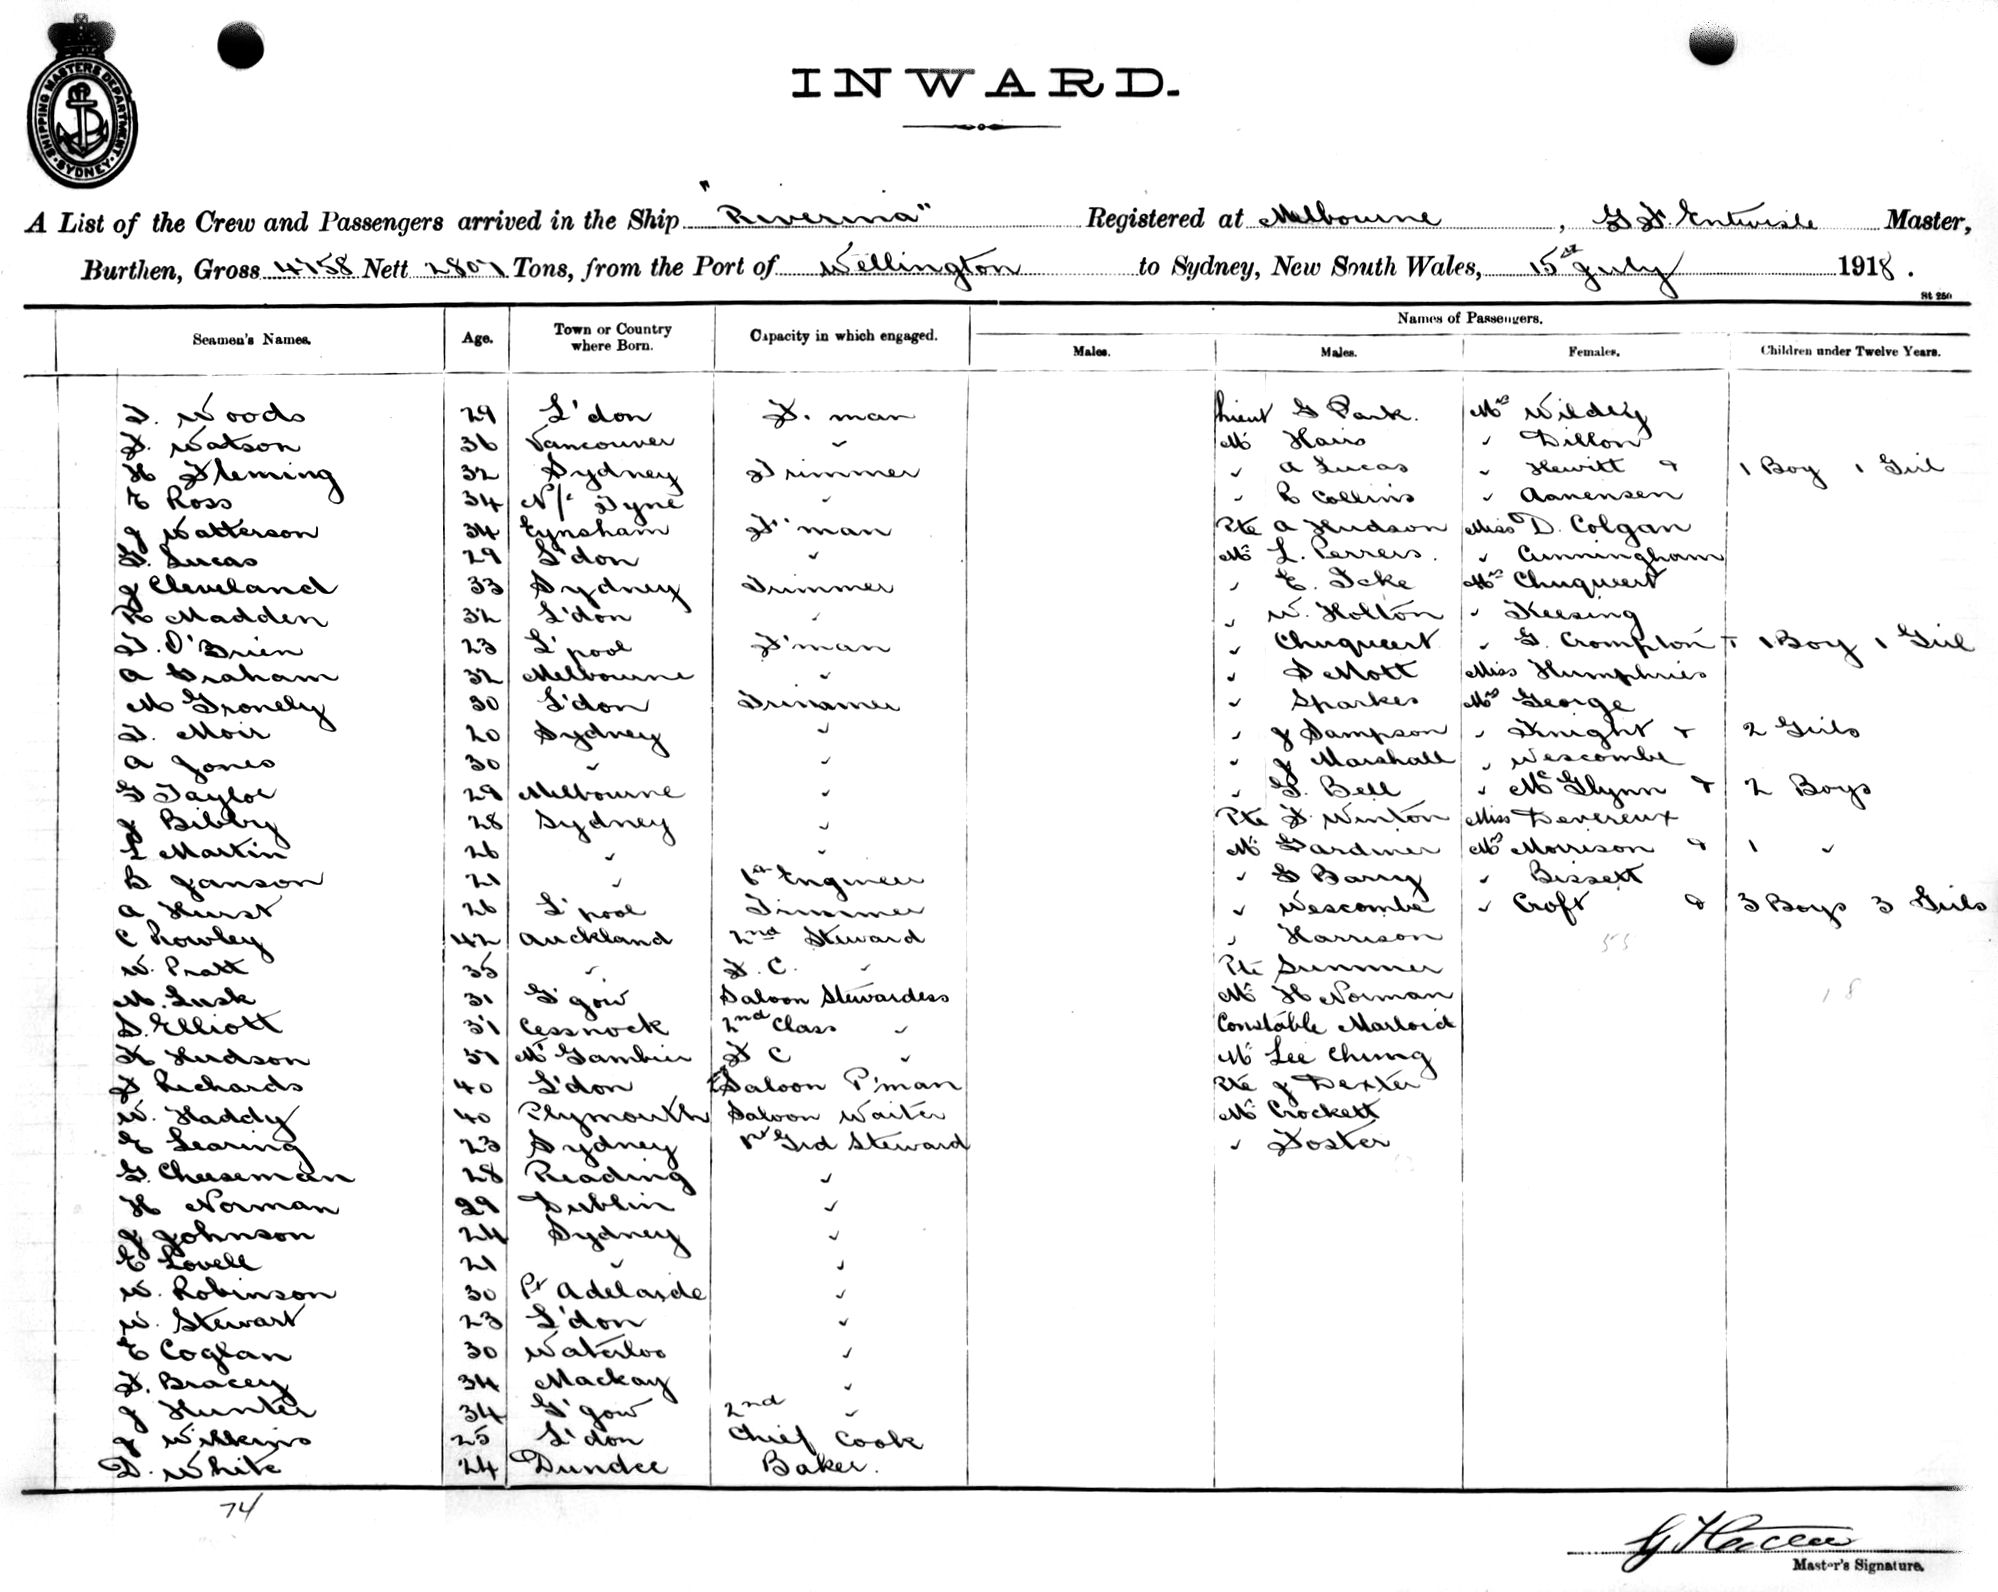 SHIPPING MASTERS DEPARTMENT SYDNEY
INWARD.
A List of the Crew and Passengers arrived in the Ship "Riverina" Registered at Melbourne, G F. Entwisle Master,
Burthen, Gross 4758 Nett 2801 Tons, from the Port of Wellington to Sydney, New South Wales, 15th July 1918.
St 250
Names of Passengers.
Seamen's Names. Age. Town or Country where Born. Capacity in which engaged. Males. Males. Females. Children under Twelve Years.
Woods 29 L'don F. man Lieut G Park. Mrs Wildey
F. Watson 36 Vancouver " Mr Hairs " Dillon
H Fleming 32 Sydney Trimmer " A Lucas " Hewitt & 1 Boy 1 Girl
E Ross 34 N/c Tyne " " R Collins " Aanensen
J Watterson 34 Eynsham F'man Pte A Hudson Miss D. Colgan
G. Lucas 29 L'don " Mr L. Perrers. " Cunningham
J Cleveland 33 Sydney Trimmer " E. Icke Mrs Chuqueert
R Madden 32 L'don " " W. Holton " Keesing
T. O'Brien 23 L'pool F'man " Chuqueert " G. Crompton & 1 Boy 1 Girl
A Graham 32 Melbourne " " S Mott Miss Humphries
M Gronely 30 L'don Trimmer " Sparkes Mrs George
T. Moir 20 Sydney " " J Sampson " Knight & 2 Girls
A Jones 30 " " " J Marshall " Wescombe
G Taylor 29 Melbourne " " G. Bell " McGlynn & 2 Boys
J Bibby 28 Sydney " Pte F. Winton Miss Devereux
L Martin 26 " " Mr Gardiner Mrs Morrison & 1 "
B Janson 21 " Engineer " G Barry " Bissett
A Hurst 26 L'pool Trimmer " Wescombe " Croft & 3 Boys 3 Girls
C Rowley 42 Auckland 2nd Steward " Harrison 55
W. Pratt 35 " F. C. " Pte Summer
M. Lusk 31 G'gow Saloon Stewardess Mr H Norman 18
S. Elliott 31 Cessnock 2nd Class " Constable
K Hudson 51 Mt Gambier F C " Mr Lee Chung
F Richards 40 L'don Saloon P'man Pte J Dexter
W. Haddy 40 Plymouth Saloon Waiter Mr Crockett
E Learing 23 Sydney Grd Steward " Foster
G. Cheeseman 28 Reading "
H Norman 29 Dublin "
J Johnson 24 Sydney "
E Lovell 21 " "
W. Robinson 30 Pt Adelaide "
W. Stewart 23 L'don "
E Coglan 30 Waterloo "
F. Bracey 34 Mackay "
J Hunter 34 G'gow 2nd "
J Wilkins 25 L'don Chief Cook
D. White 24 Dundee Baker.
74
Master's Signature.